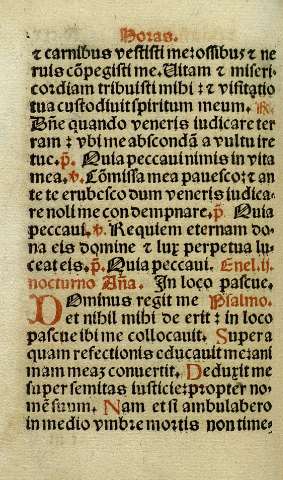 Horas.
⁊ carnibus vestisti me: ossibus ⁊ ne
ruis cōpegisti me. Uitam ⁊ miseri
cordiam tribuisti mihi: ⁊ visitatio
tua custodiuit spiritum meum. ℟.
Dn̄e quando veneris iudicare ter
ram: vbi me abscondā a vultu ire
tue. p̄. Quia peccaui nimis in vita
mea. ℣. Cōmissa mea pauesco: ⁊ an
te te erubesco dum veneris iudica-
re noli me condempnare. p̄. Quia
peccaui. ℣. Requiem eternam do
na eis domine ⁊ lux perpetua lu-
ceat eis. p̄. Quia peccaui. En el .ij.
nocturno Aña. In loco pascue.
Dominus regit me Psalmo.
et nihil mihi deerit: in loco
pascue ibi me collocauit. Super a
quam refectionis educauit me: ani
mam meaz conuertit. Deduxit me
super semitas iusticie: propter no-
mē suum. Nam et si ambulabero
in medio vmbre mortis non time-